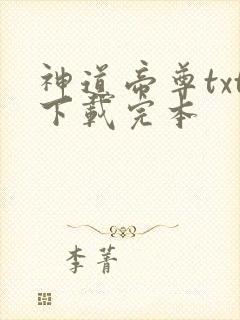 神道帝尊txt
下载完本
李菁